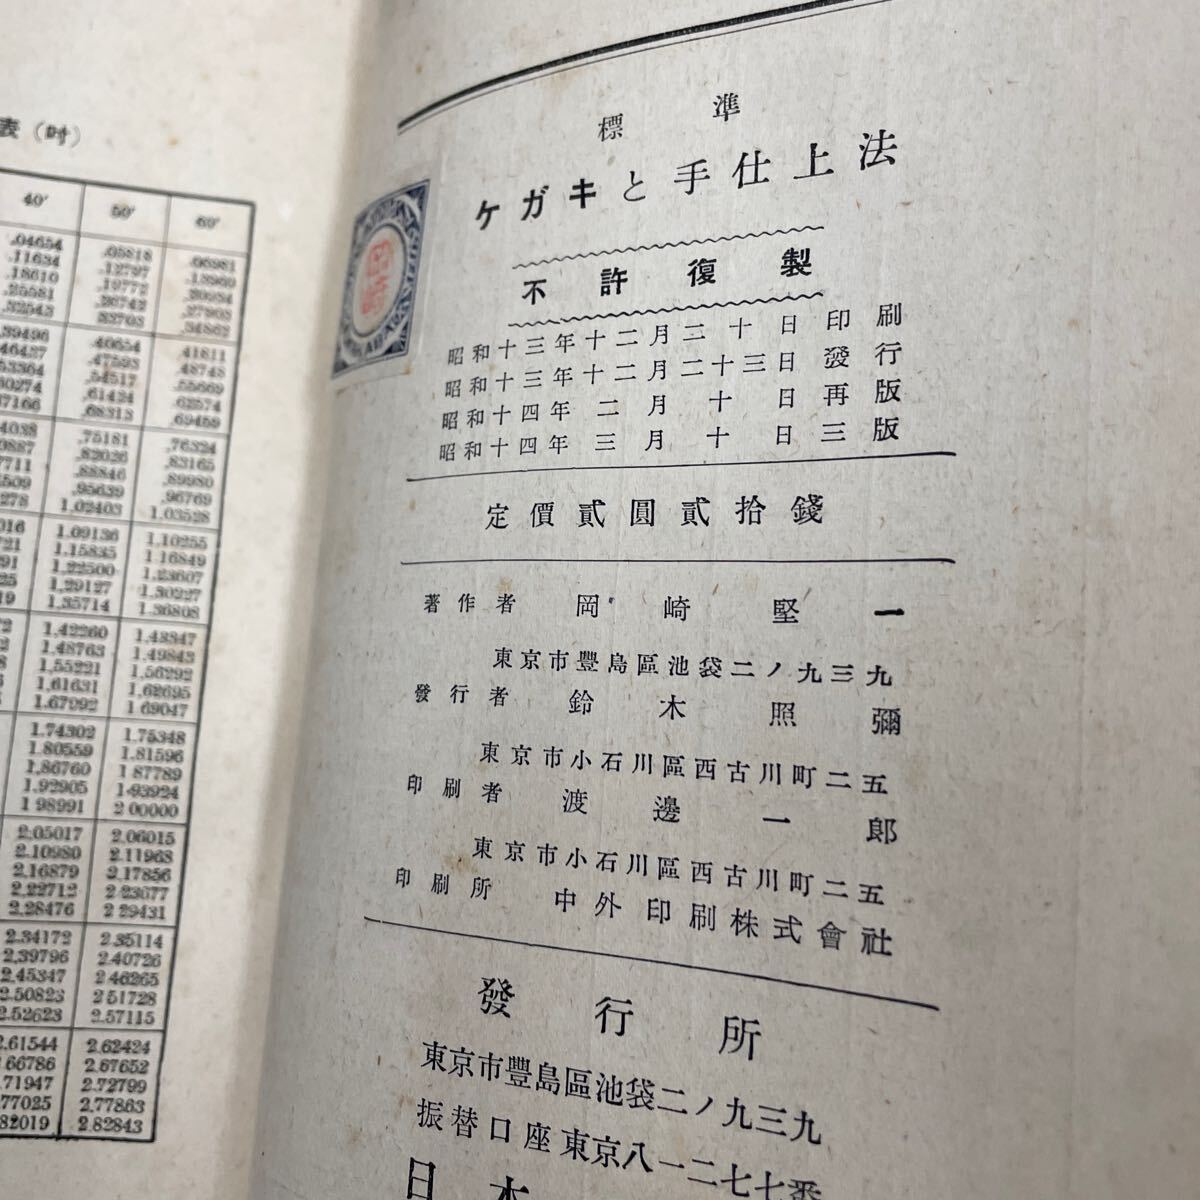 表（吋）
40′ 50′ 60′
.04654 .05818 .06981
.11634 .12797 .13960
.18610 .19772 .20934
.25581 .26742 .27903
.32543 .33703 .34862
.39496 .40654 .41811
.46437 .47593 .48748
.53364 .54517 .55669
.60274 .61424 .62574
.67166 .68313 .69459
.75181 .76324
.82026 .83165
.88846 .89980
.95639 .96769
1.02403 1.03528
1.09136 1.10255
1.15835 1.16849
1.22500 1.23607
1.29127 1.30227
1.35714 1.36808
1.42260 1.43347
1.48763 1.49843
1.55221 1.56292
1.61631 1.62695
1.67992 1.69047
1.74302 1.75348
1.80559 1.81596
1.86760 1.87789
1.92905 1.93924
1.98991 2.00000
2.05017 2.06015
2.10980 2.11963
2.16879 2.17856
2.22712 2.23677
2.28476 2.29431
2.34172 2.35114
2.39796 2.40726
2.45347 2.46265
2.50823 2.51728
2.52623 2.57115
2.61544 2.62424
2.66786 2.67652
2.71947 2.72799
2.77025 2.77863
2.82019 2.82843
標準
ケガキと手仕上法
不許復製
昭和十三年十二月二十日印刷
昭和十三年十二月二十三日發行
昭和十四年二月十日再版
昭和十四年三月十日三版
定價貳圓貳拾錢
著作者 岡崎堅一
東京市豐島區池袋二ノ九三九
發行者 鈴木照彌
東京市小石川區西古川町二五
印刷者 渡邊一郎
東京市小石川區西古川町二五
印刷所 中外印刷株式會社
發行所
東京市豐島區池袋二ノ九三九
振替口座東京八一二七七番
日本